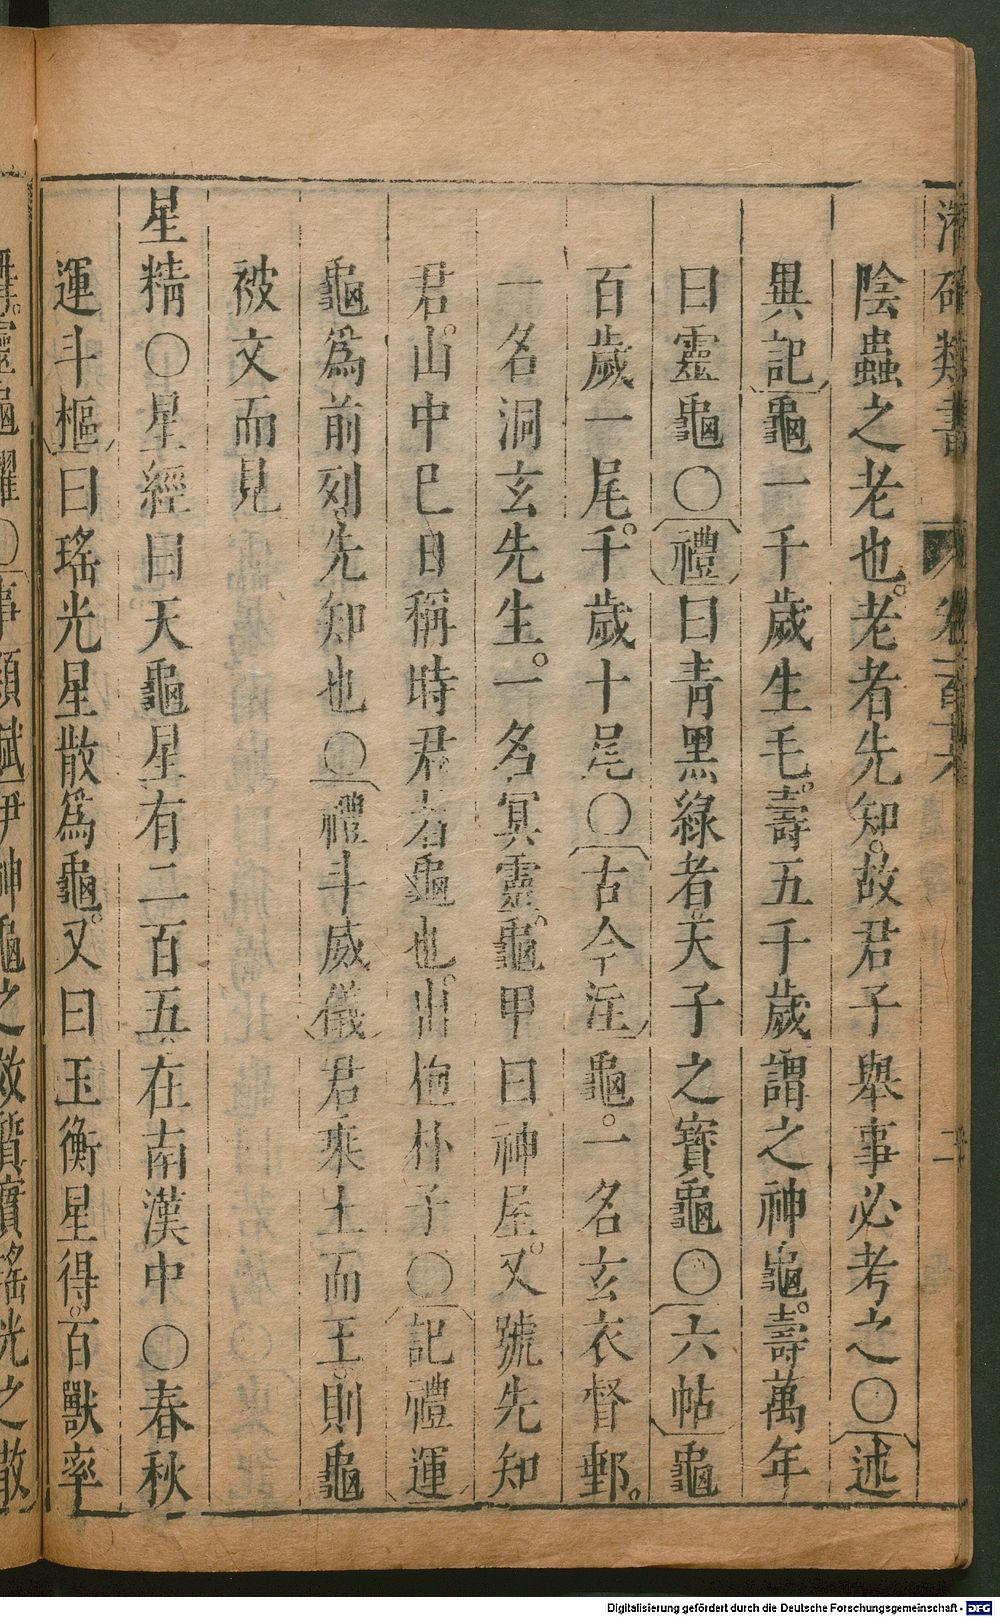 潛確類書
卷一百
陰蟲之老也。老者先知。故君子舉事必考之〇述
異記龜一千歲生毛。壽五千歲謂之神龜。壽萬年
曰靈龜〇禮曰青黑綠者天子之寶龜〇六帖龜
百歲一尾。千歲十尾〇古今注龜。一名玄衣督郵。
一名洞玄先生。一名冥靈。龜甲曰神屋。又號先知
君。山中巳日稱時君者龜也。出抱朴子〇記禮運
龜爲前列。先知也〇禮斗威儀君乘土而王。則龜
被文而見
星精〇星經曰天龜星有二百五在南漢中〇春秋
運斗樞曰瑤光星散爲龜。又曰玉衡星得。百獸率
舞。靈龜躍〇事類賦伊神龜之效質實瑤光之散
Digitalisierung gefördert durch die Deutsche Forschungsgemeinschaft - DFG